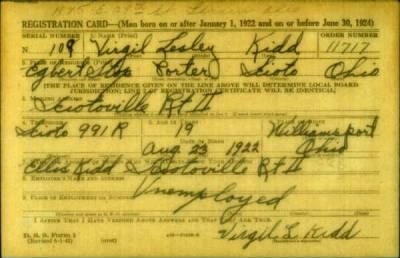 REGISTRATION CARD—(Men born on or after January 1, 1922 and on or before June 30, 1924)
SERIAL NUMBER 1. NAME (Print) ORDER NUMBER
N 109 Virgil Lesley Kidd 11717
2. PLACE OF RESIDENCE (Print)
Porter Scioto Ohio
(THE PLACE OF RESIDENCE GIVEN ON THE LINE ABOVE WILL DETERMINE LOCAL BOARD
JURISDICTION; LINE 2 OF REGISTRATION CERTIFICATE WILL BE IDENTICAL)
3. MAILING ADDRESS
Sciotoville Rt II
4. TELEPHONE 5. AGE IN YEARS
Scioto 991R 19 Williamsport
DATE OF BIRTH
Aug 23 1922 Ohio
Kidd Sciotoville Rt II
8. EMPLOYER'S NAME AND ADDRESS
Unemployed
9. PLACE OF EMPLOYMENT OR BUSINESS
I AFFIRM THAT I HAVE VERIFIED ABOVE ANSWERS AND THAT THEY ARE TRUE.
D. S. S. Form 1
Virgil L Kidd